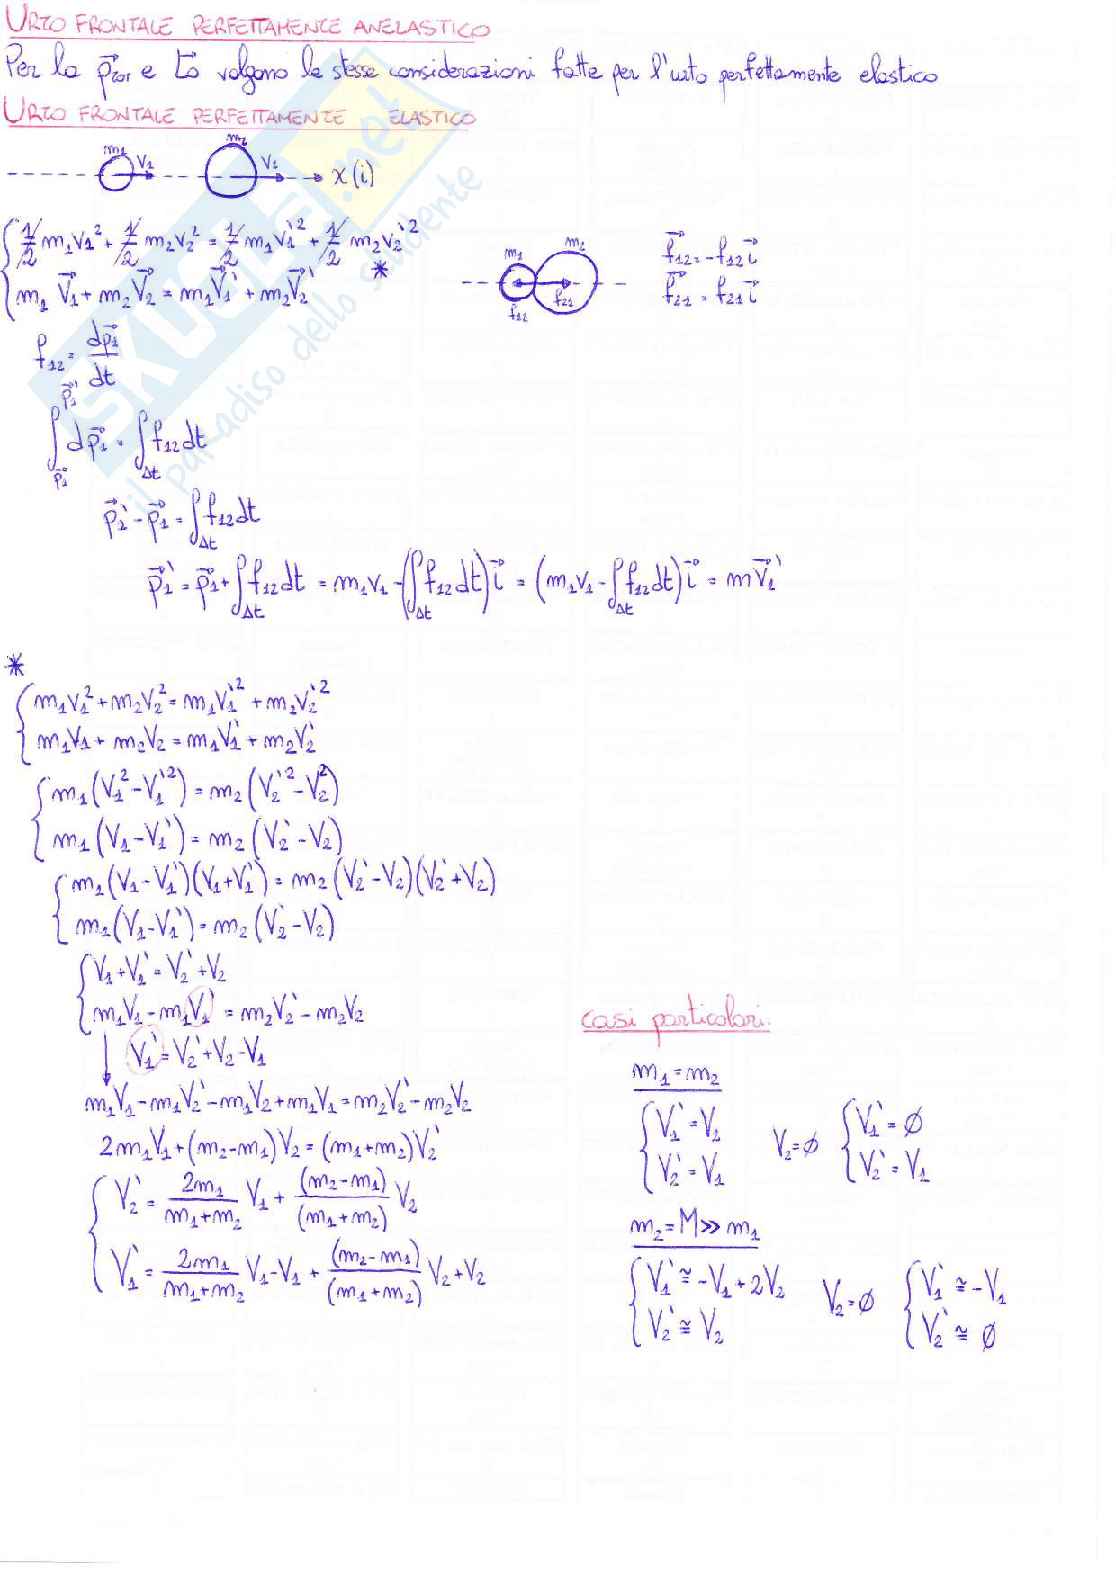 URTO FRONTALE PERFETTAMENTE ANELASTICO
Per la p⃗tot e valgono le stesse considerazioni fatte per l'urto perfettamente elastico
URTO FRONTALE PERFETTAMENTE ELASTICO
m1 V1 m2 V1 X(i)
{ 1/2 m1V1² + 1/2 m2V2² = 1/2 m1V1'² + 1/2 m2V2'²
{ m1V⃗1 + m2V⃗2 = m1V⃗1' + m2V⃗2' *
m1 m2 f12 f21
f⃗12 = -f12 i⃗
f⃗21 = f21 i⃗
f12 = dp⃗1/dt
∫p⃗1^p⃗1' dp⃗1 = ∫Δt f12dt
p⃗1' - p⃗1 = ∫Δt f12dt
p⃗1' = p⃗1 + ∫Δt f12dt = m1v1 - (∫Δt f12dt) i⃗ = (m1v1 - ∫Δt f12dt) i⃗ = mv⃗1'
*
{ m1V1² + m2V2² = m1V1'² + m1V2'²
{ m1V1 + m2V2 = m1V1' + m2V2'
{ m1(V1² - V1'²) = m2(V2'² - V2²)
{ m1(V1 - V1') = m2(V2' - V2)
{ m1(V1 - V1')(V1 + V1') = m2(V2' - V2)(V2' + V2)
{ m1(V1 - V1') = m2(V2' - V2)
{ V1 + V1' = V2' + V2
{ m1V1 - m1V1' = m2V2' - m2V2
V1' = V2' + V2 - V1
m1V1 - m1V2' - m1V2 + m1V1 = m2V2' - m2V2
2m1V1 + (m2 - m1)V2 = (m1 + m2)V2'
{ V2' = 2m1/(m1+m2) V1 + (m2 - m1)/(m1 + m2) V2
{ V1' = 2m1/(m1+m2) V1 - V1 + (m2 - m1)/(m1 + m2) V2 + V2
casi particolari:
m1 = m2
{ V1' = V2
{ V2' = V1
V2 = ∅
{ V1' = ∅
{ V2' = V1
m2 = M >> m1
{ V1' ≅ -V1 + 2V2
{ V2' ≅ V2
V2 = ∅
{ V1' ≅ -V1
{ V2' ≅ ∅
SKUOLA.net
il paradiso dello studente